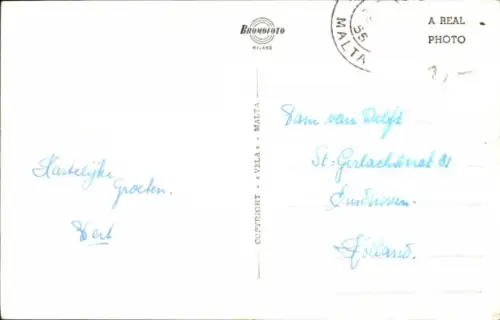 BROMOFOTO
MILANO
55
MALTA
A REAL
PHOTO
2,-
Hartelijke
Groeten.
Bert
COPYRIGHT - «VELA» - MALTA
Dam van Delft
St. Gerlachstraat 81
Eindhoven.
Holland.